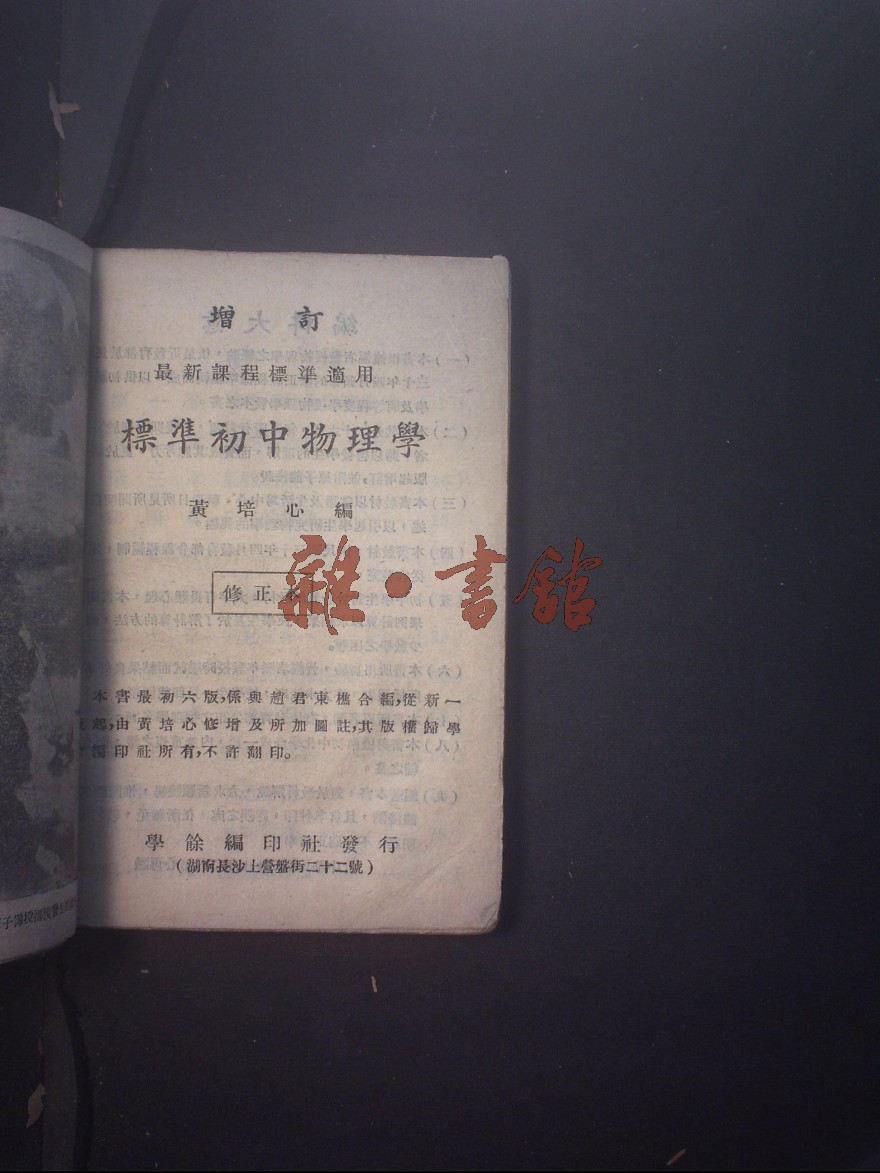 增訂
最新課程標準適用
標準初中物理學
黃培心編
修正本
雜·書館
本書最初六版,係與趙君東樵合編,從新一
起,由黃培心修增及所加圖註,其版權歸學
編印社所有,不許翻印。
學餘編印社發行
(湖南長沙上營盤街二十二號)